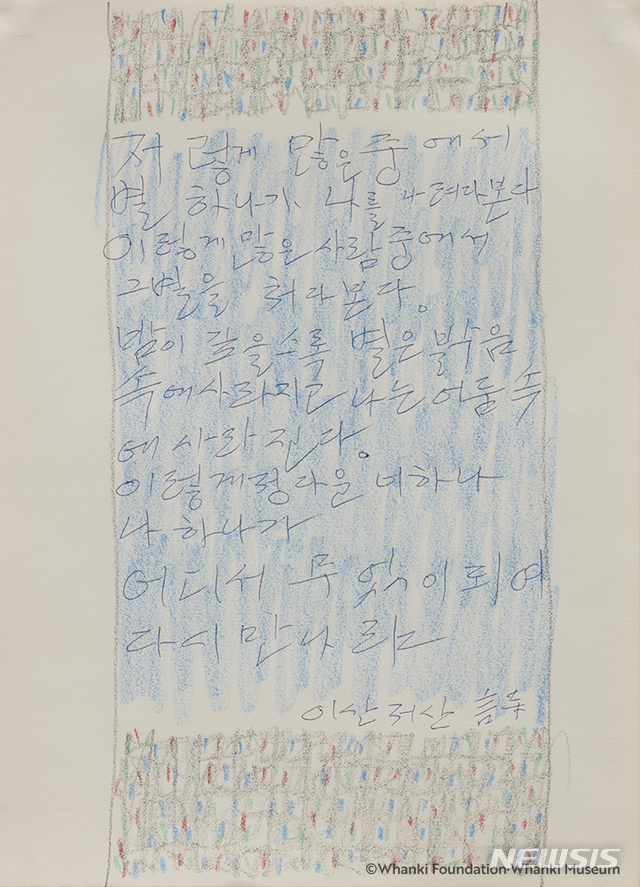 저렇게 많은 중에서
별 하나가 나를 나려다본다
이렇게 많은 사람중에서
그별을 쳐다본다。
밤이 깊을수록 별은 밝음
속에 사라지고 나는 어둠 속
에 사라진다。
이렇게 정다운 너하나
나 하나가
어디서 무엇이 되여
다시 만나랴
이산 저산
©Whanki Foundation·Whanki Museum
NEWSIS